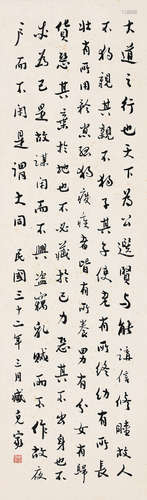 大道之行也天下為公選賢与能講信修睦故人
不獨親其親不獨子其子使老有所終幼有所長
壯有所用矜寡孤獨廢疾者皆有所養男有分女有歸
貨惡其棄於地也不必藏於己力惡其不出身也不
必為己是故謀閉而不興盜竊亂賊而不作故外
戶而不閉是謂大同 民國三十二年三月臧克家